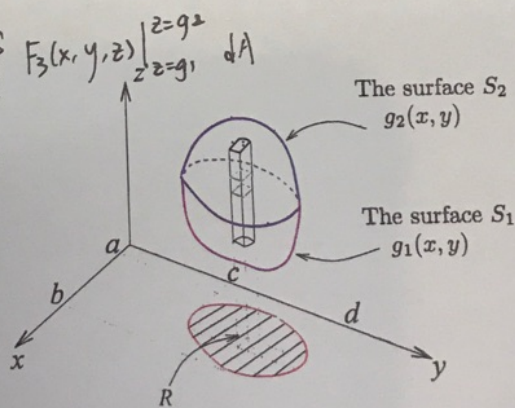 F₃(x, y, z) |z=g2 z=g1 dA
z
The surface S₂
g₂(x, y)
The surface S₁
g₁(x, y)
a
b
c
d
x
y
R